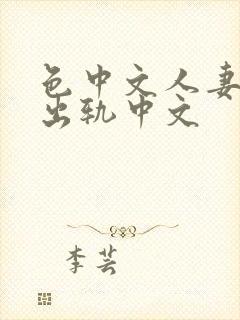 色中文人妻
出轨中文
李芸